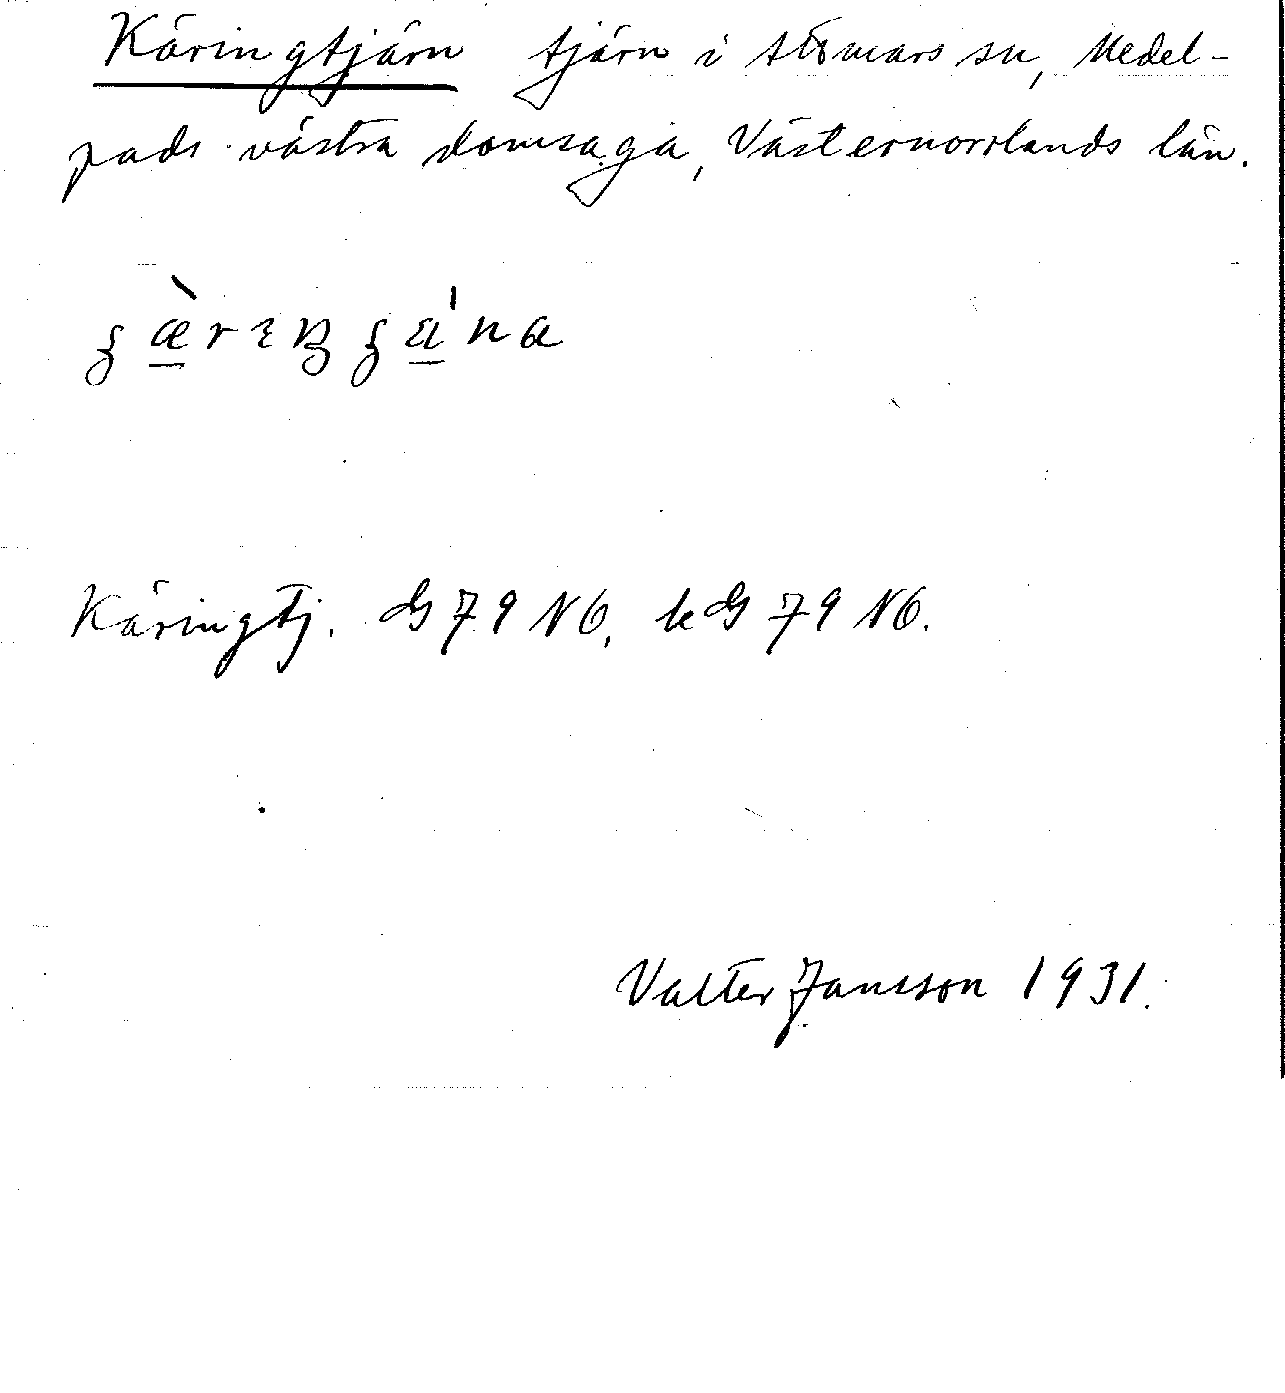 Käringtjärn tjärn i Attmars sn, Medel-
pads västra domsaga, Västernorrlands län.
Käringtj. G 79 NO, kG 79 NO.
Valter Jansson 1931.